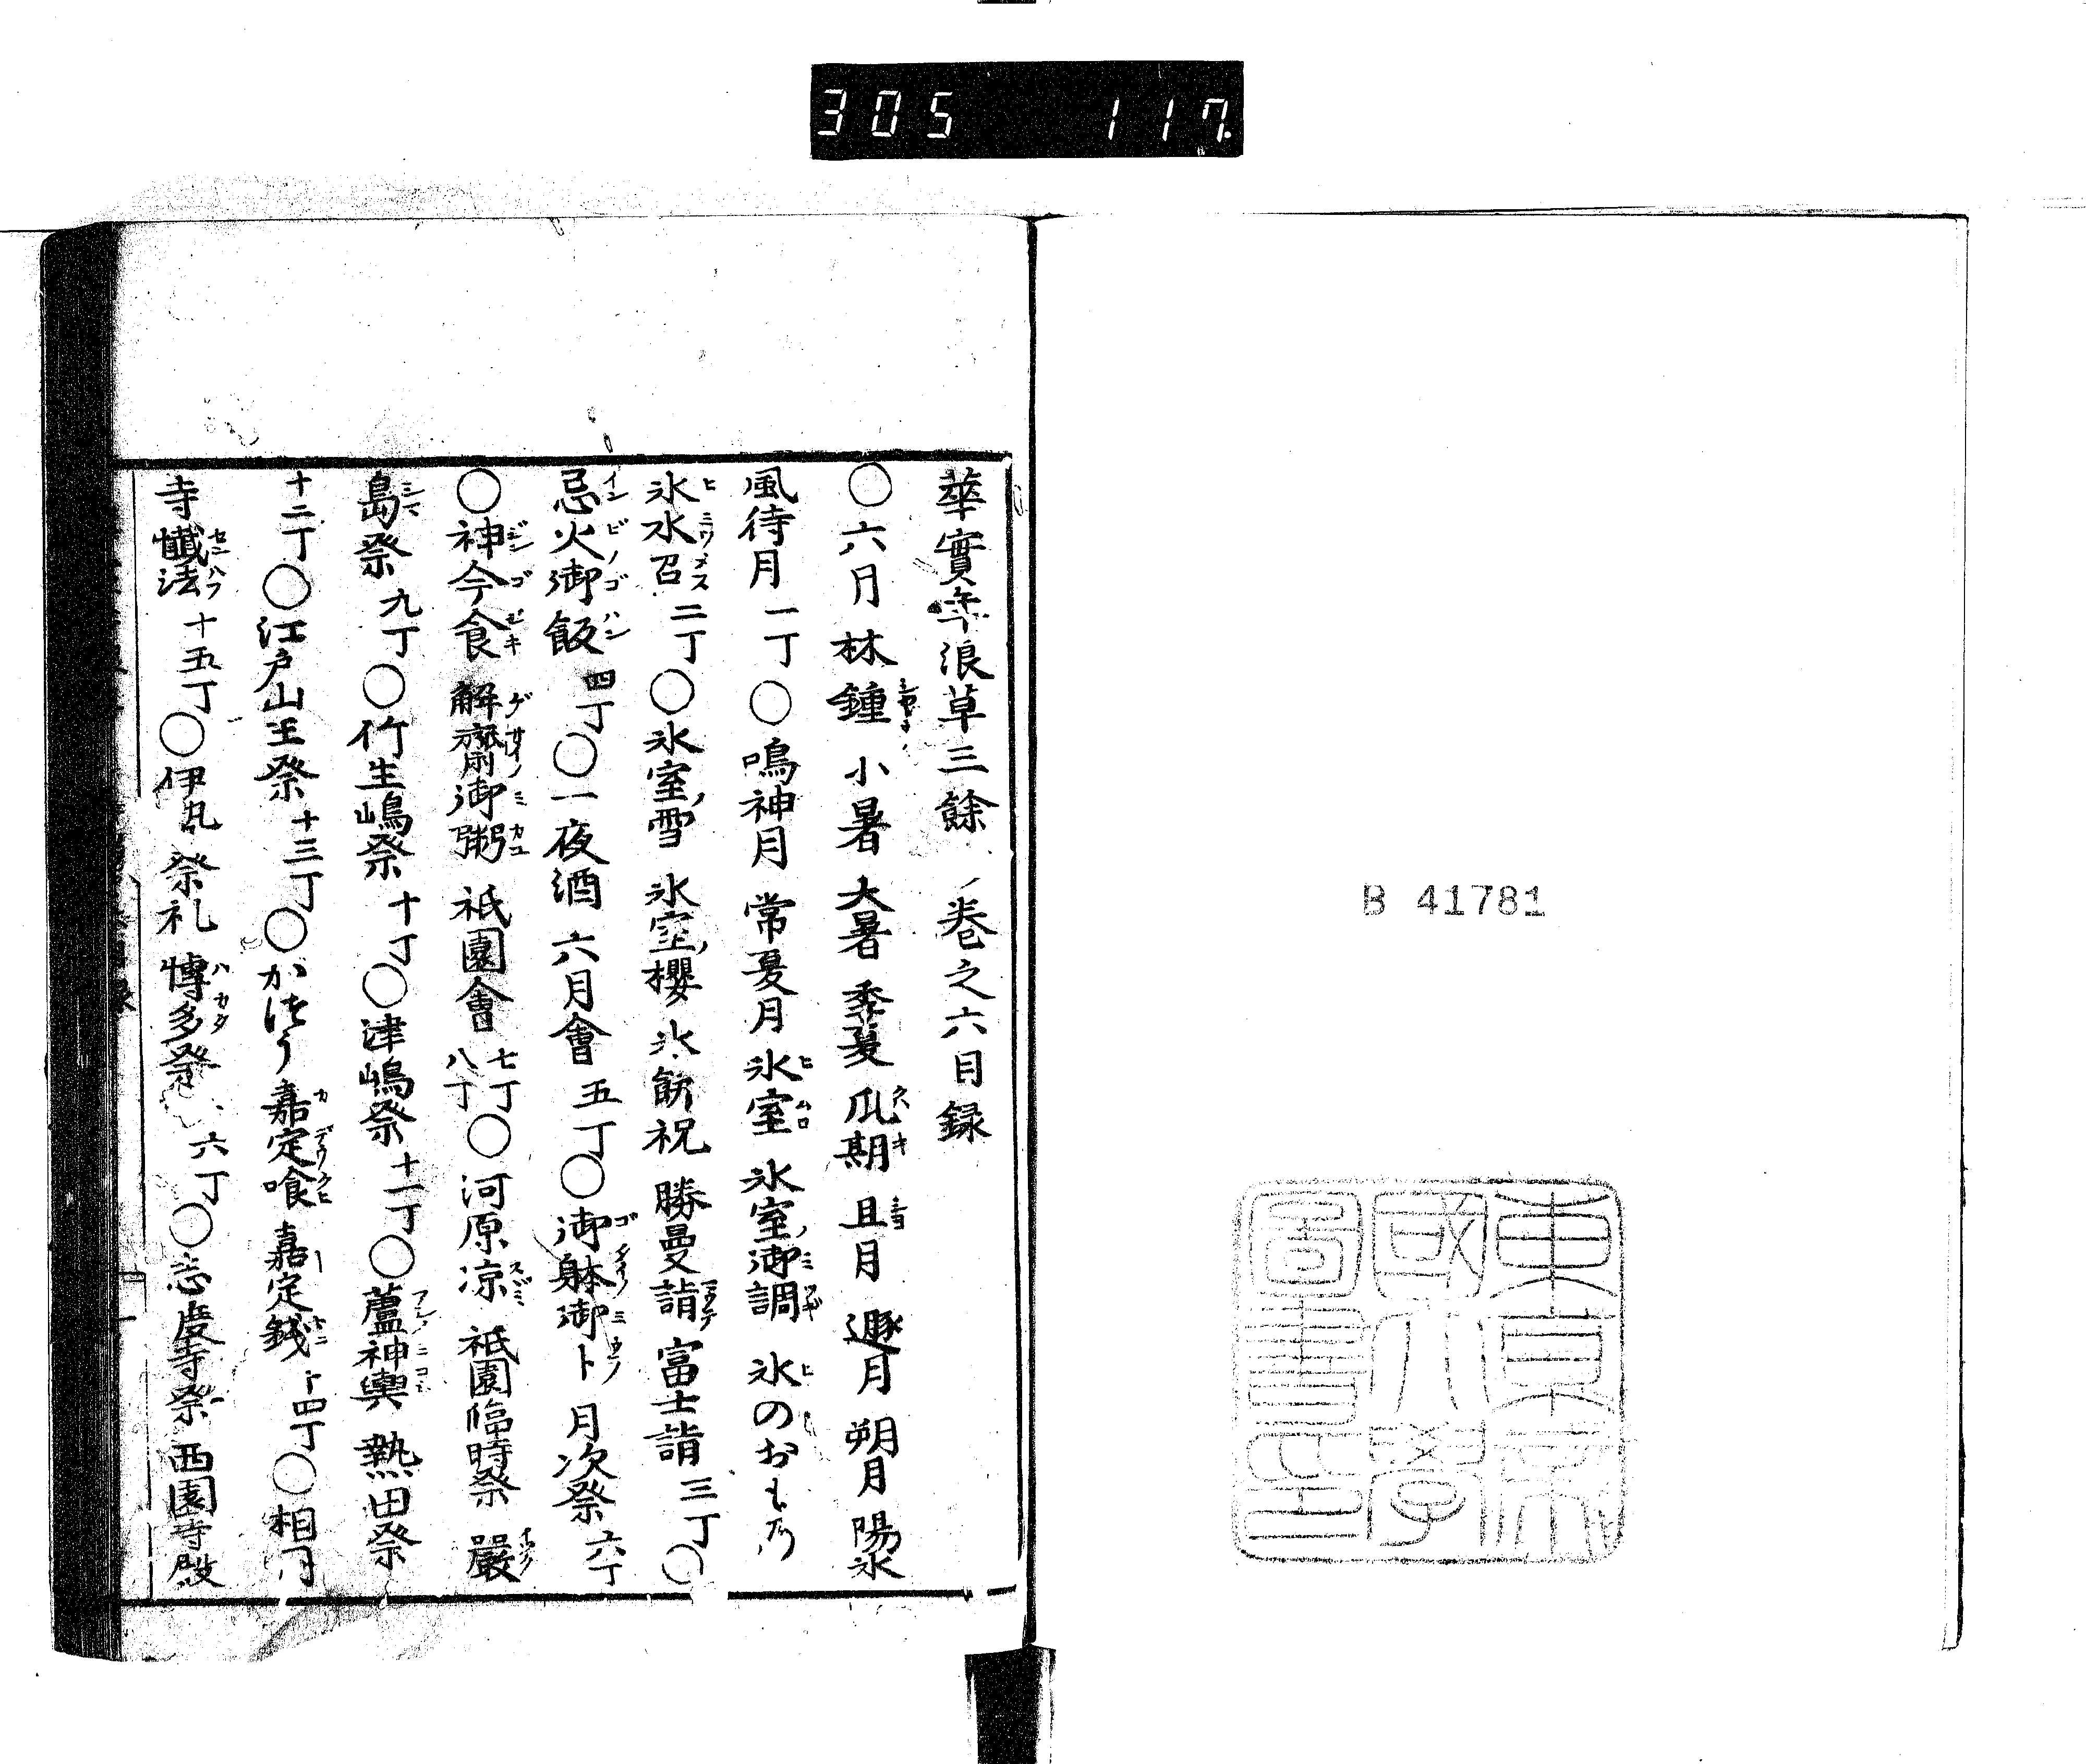 305 117
B 41781
東京帝
國大學
圖書印
華實年浪草三餘 巻之六目録
○六月 林鍾 小暑 大暑 季夏 瓜期 且月 遯月 朔月 陽氷
風待月 一丁 ○鳴神月 常夏月 氷室 氷室ノ御調 氷のおもの
氷水召 二丁 ○氷室ノ雪 氷室ノ櫻 氷餅祝 勝曼詣 富士詣 三丁○
忌火御飯 四丁 ○一夜酒 六月會 五丁 ○御躰御卜 月次祭 六丁
○神今食 解齋御粥 祇園會 七丁 八丁 ○河原凉 祇園臨時祭 嚴
島祭 九丁 ○竹生嶋祭 十丁 ○津嶋祭 十一丁 ○蘆神輿 熱田祭
十二丁 ○江戸山王祭 十三丁 ○かつう 嘉定喰 嘉定錢 十四丁 ○相月
寺懺法 十五丁 ○伊丸祭礼 博多祭 六丁 ○忘度寺祭 西園寺殿